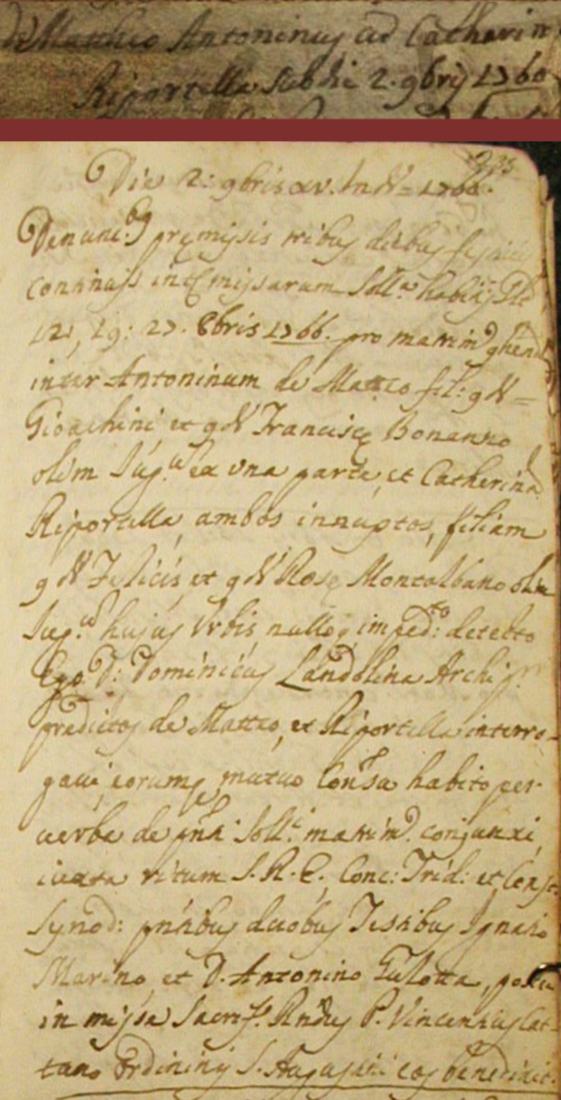 de Mattheo Antoninus cú Catharin
Riportella sub die 2. 9bris 1766
235
Die 2: 9bris xv. Ind. 1766.
Denunc.bus premissis tribus diebus festivis
continuis int missarum soll.a habitis
12, 19: 27. 8bris 1766. pro matrim.o
inter Antoninum de Matteo fil: qd
Gioachini et qd Francisce Bonanno
olim Jug.m ex una parte, et Catherina
Riportella, ambos innuptos, filiam
qd Felicis, et qd Rose Montalbano olim
Jug.m hujus Urbis nulloq imped.to: detecto
Ego D: Dominicus Landolina Archip.
predictos de Matteo, et Riportella interro-
gavi, eorumq mutuo Consu habito per
verba de pnti soll.r matrim.o conjunxi
iuxta ritum S. R. E, Conc: Trid: et Const.
Synod: pntibus duobus Testibus Ignatio
Marino, et D. Antonino Gulotta, postea
in missa Sacrif. Rndus P. Vincentius Cat-
tano Ordininis S. Augustini eos benedixit.